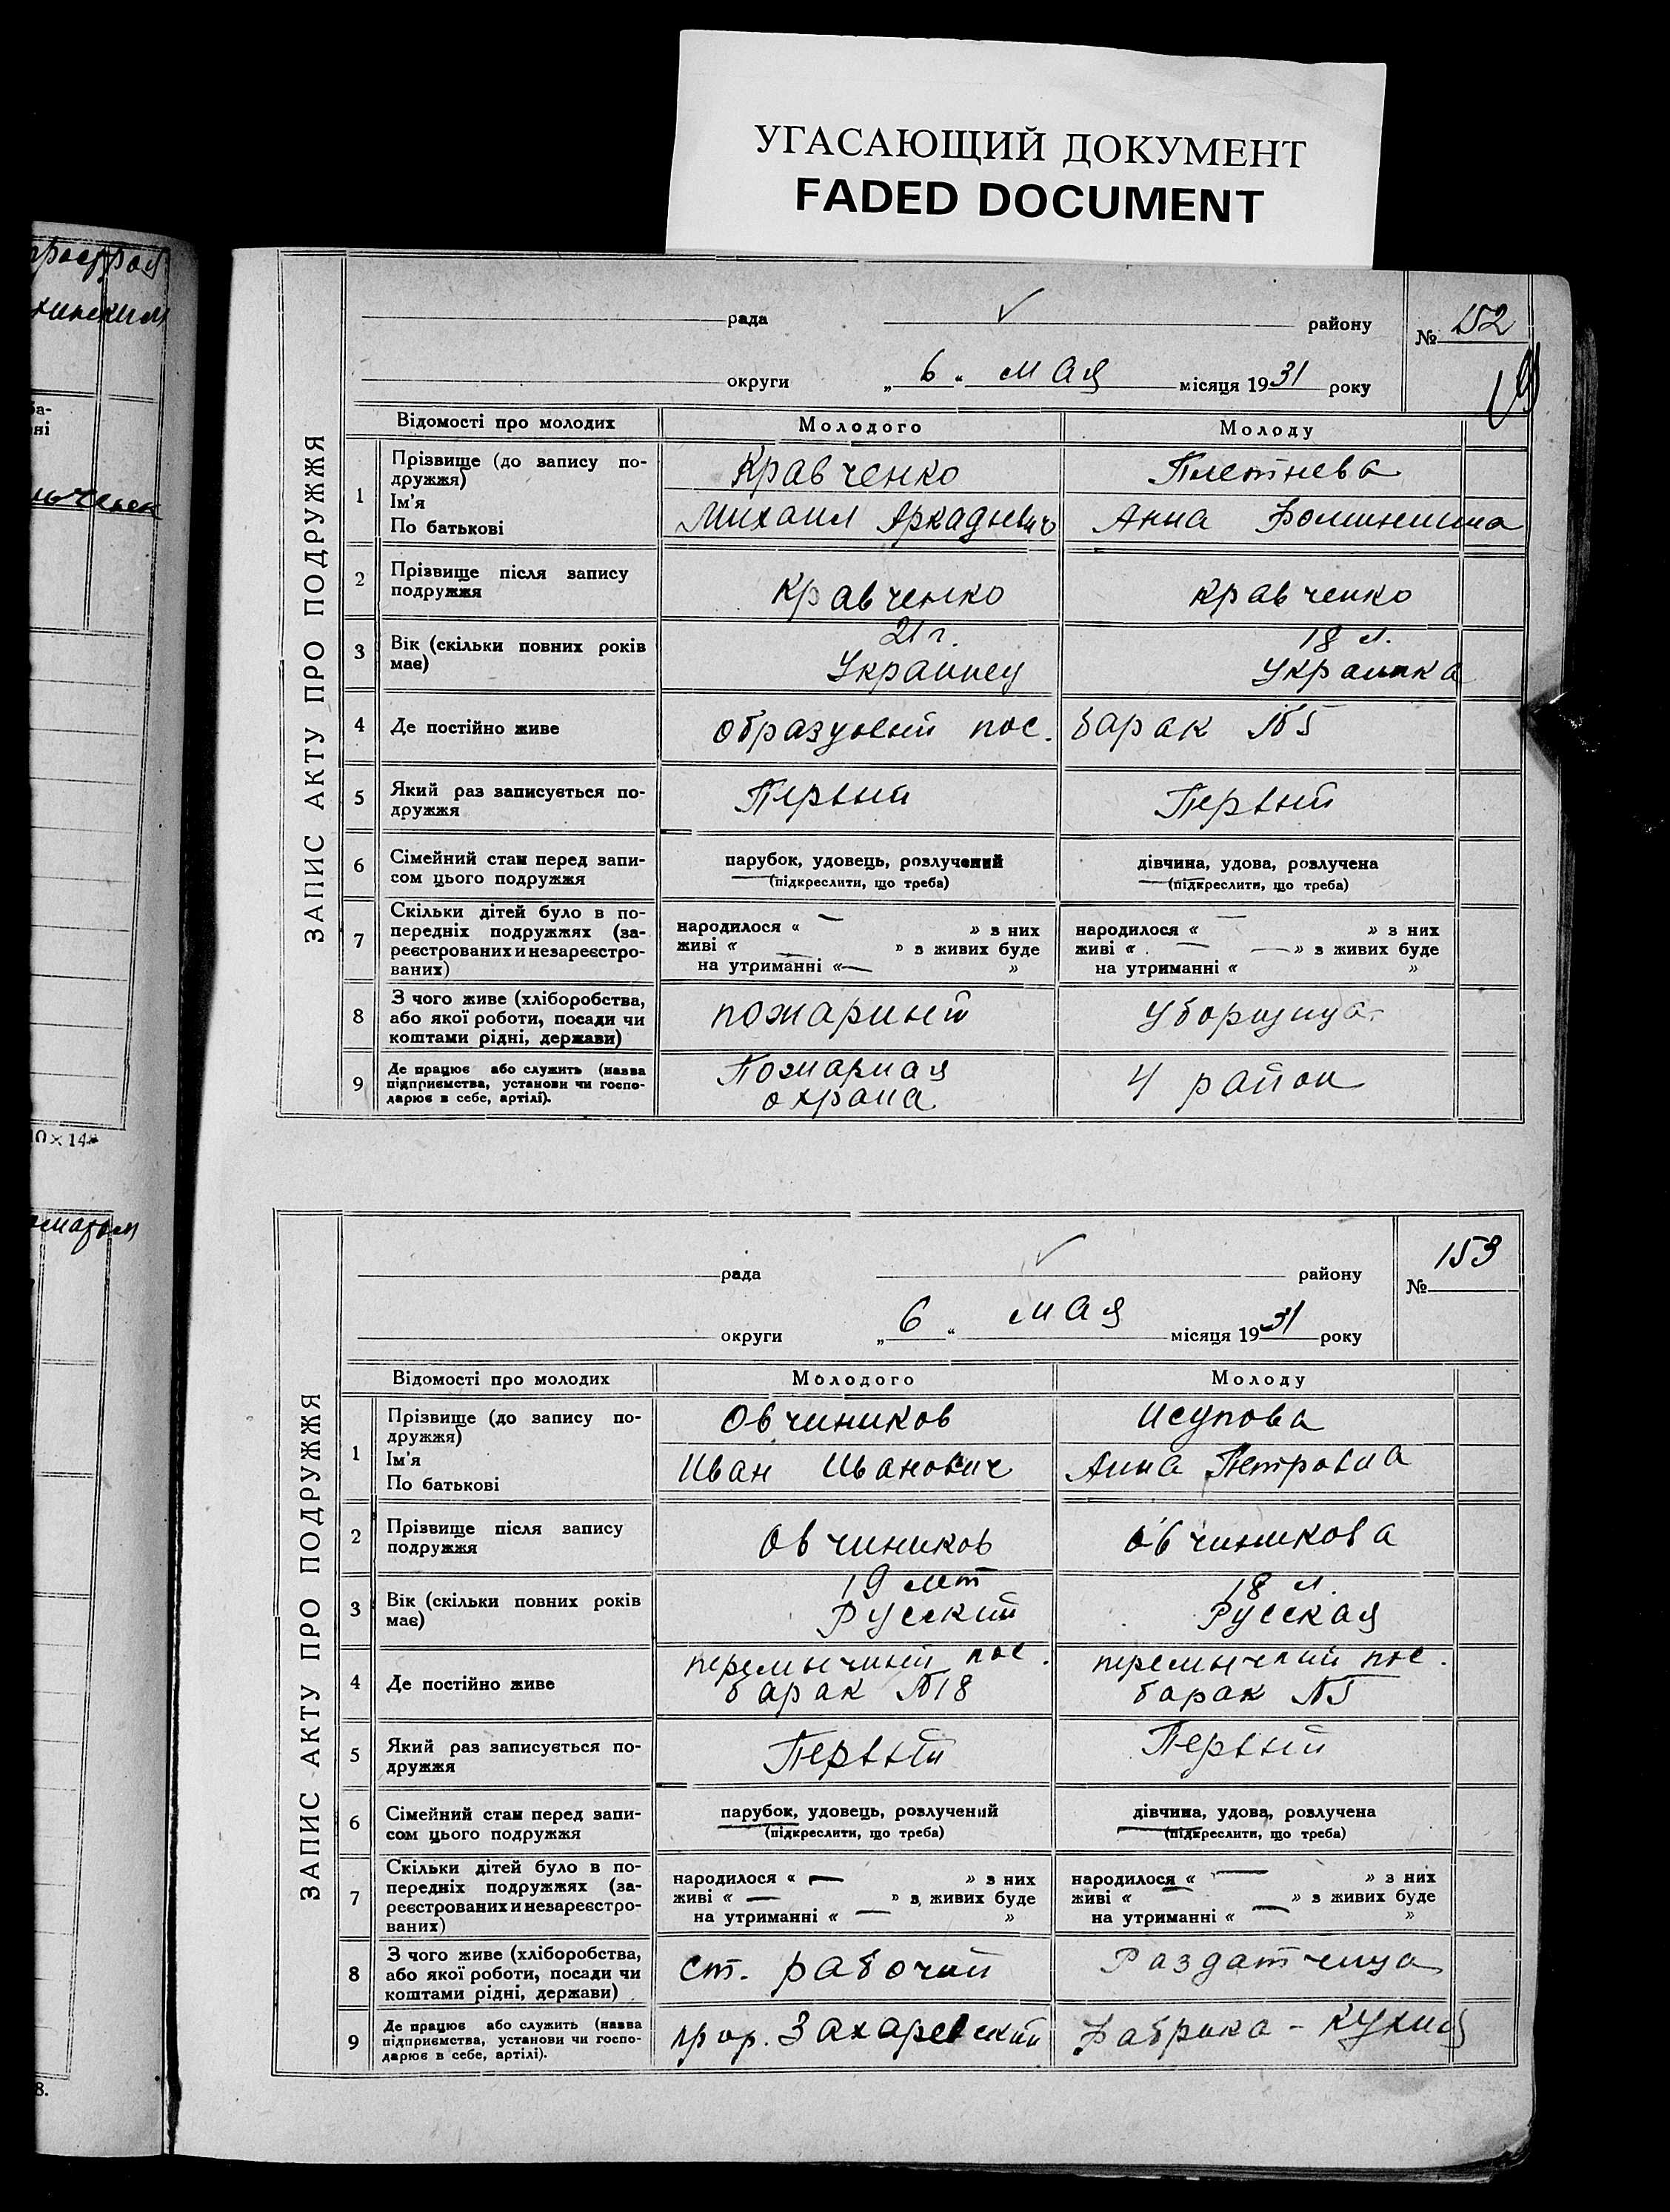 УГАСАЮЩИЙ ДОКУМЕНТ
FADED DOCUMENT
ЗАПИС АКТУ ПРО ПОДРУЖЖЯ
рада района району № 152
округи „ 6 “ мая місяця 1931 року
Відомості про молодих Молодого Молоду
1 Прізвище (до запису по-
дружжя) Кравченко Плетнева
Ім'я
По батькові Михаил Аркадьевич Анна
2 Прізвище після запису
подружжя Кравченко Кравченко
3 Вік (скільки повних років
має) 21 г. 18 л.
Украинец Украинка
4 Де постійно живе образцовый пос. барак №5
5 Який раз записується по-
дружжя Первый Первый
6 Сімейний стан перед запи-
сом цього подружжя
парубок, удовець, розлучений
(підкреслити, що треба)
дівчина, удова, розлучена
(підкреслити, що треба)
7 Скільки дітей було в по-
передніх подружжях (за-
реєстрованих и незареєстро-
ваних)
народилося « — » з них
живі « — » з живих буде
на утриманні « — »
народилося « — » з них
живі « — » з живих буде
на утриманні « »
8 З чого живе (хліборобства,
або якої роботи, посади чи
коштами рідні, держави) пожарный Уборщица
9 Де працює або служить (назва
підприємства, установи чи госпо-
дарює в себе, артілі).
Пожарная
охрана
4 район
10×14
ЗАПИС АКТУ ПРО ПОДРУЖЖЯ
рада району № 153
округи „ 6 “ мая місяця 1931 року
Відомості про молодих Молодого Молоду
1 Прізвище (до запису по-
дружжя) Овчиников Исупова
Ім'я
По батькові Иван Иванович Анна Петровна
2 Прізвище після запису
подружжя Овчиников Овчиникова
3 Вік (скільки повних років
має) 19 лет 18 л.
Русский Русская
4 Де постійно живе
перемычный пос.
барак №18
перемычный пос.
барак №5
5 Який раз записується по-
дружжя Первый Первый
6 Сімейний стан перед запи-
сом цього подружжя
парубок, удовець, розлучений
(підкреслити, що треба)
дівчина, удова, розлучена
(підкреслити, що треба)
7 Скільки дітей було в по-
передніх подружжях (за-
реєстрованих и незареєстро-
ваних)
народилося « — » з них
живі « — » з живих буде
на утриманні « — »
народилося « — » з них
живі « » з живих буде
на утриманні « — »
8 З чого живе (хліборобства,
або якої роботи, посади чи
коштами рідні, держави) ст. рабочий Раздатчица
9 Де працює або служить (назва
підприємства, установи чи госпо-
дарює в себе, артілі).
прор. Захаревский
Фабрика - кухня